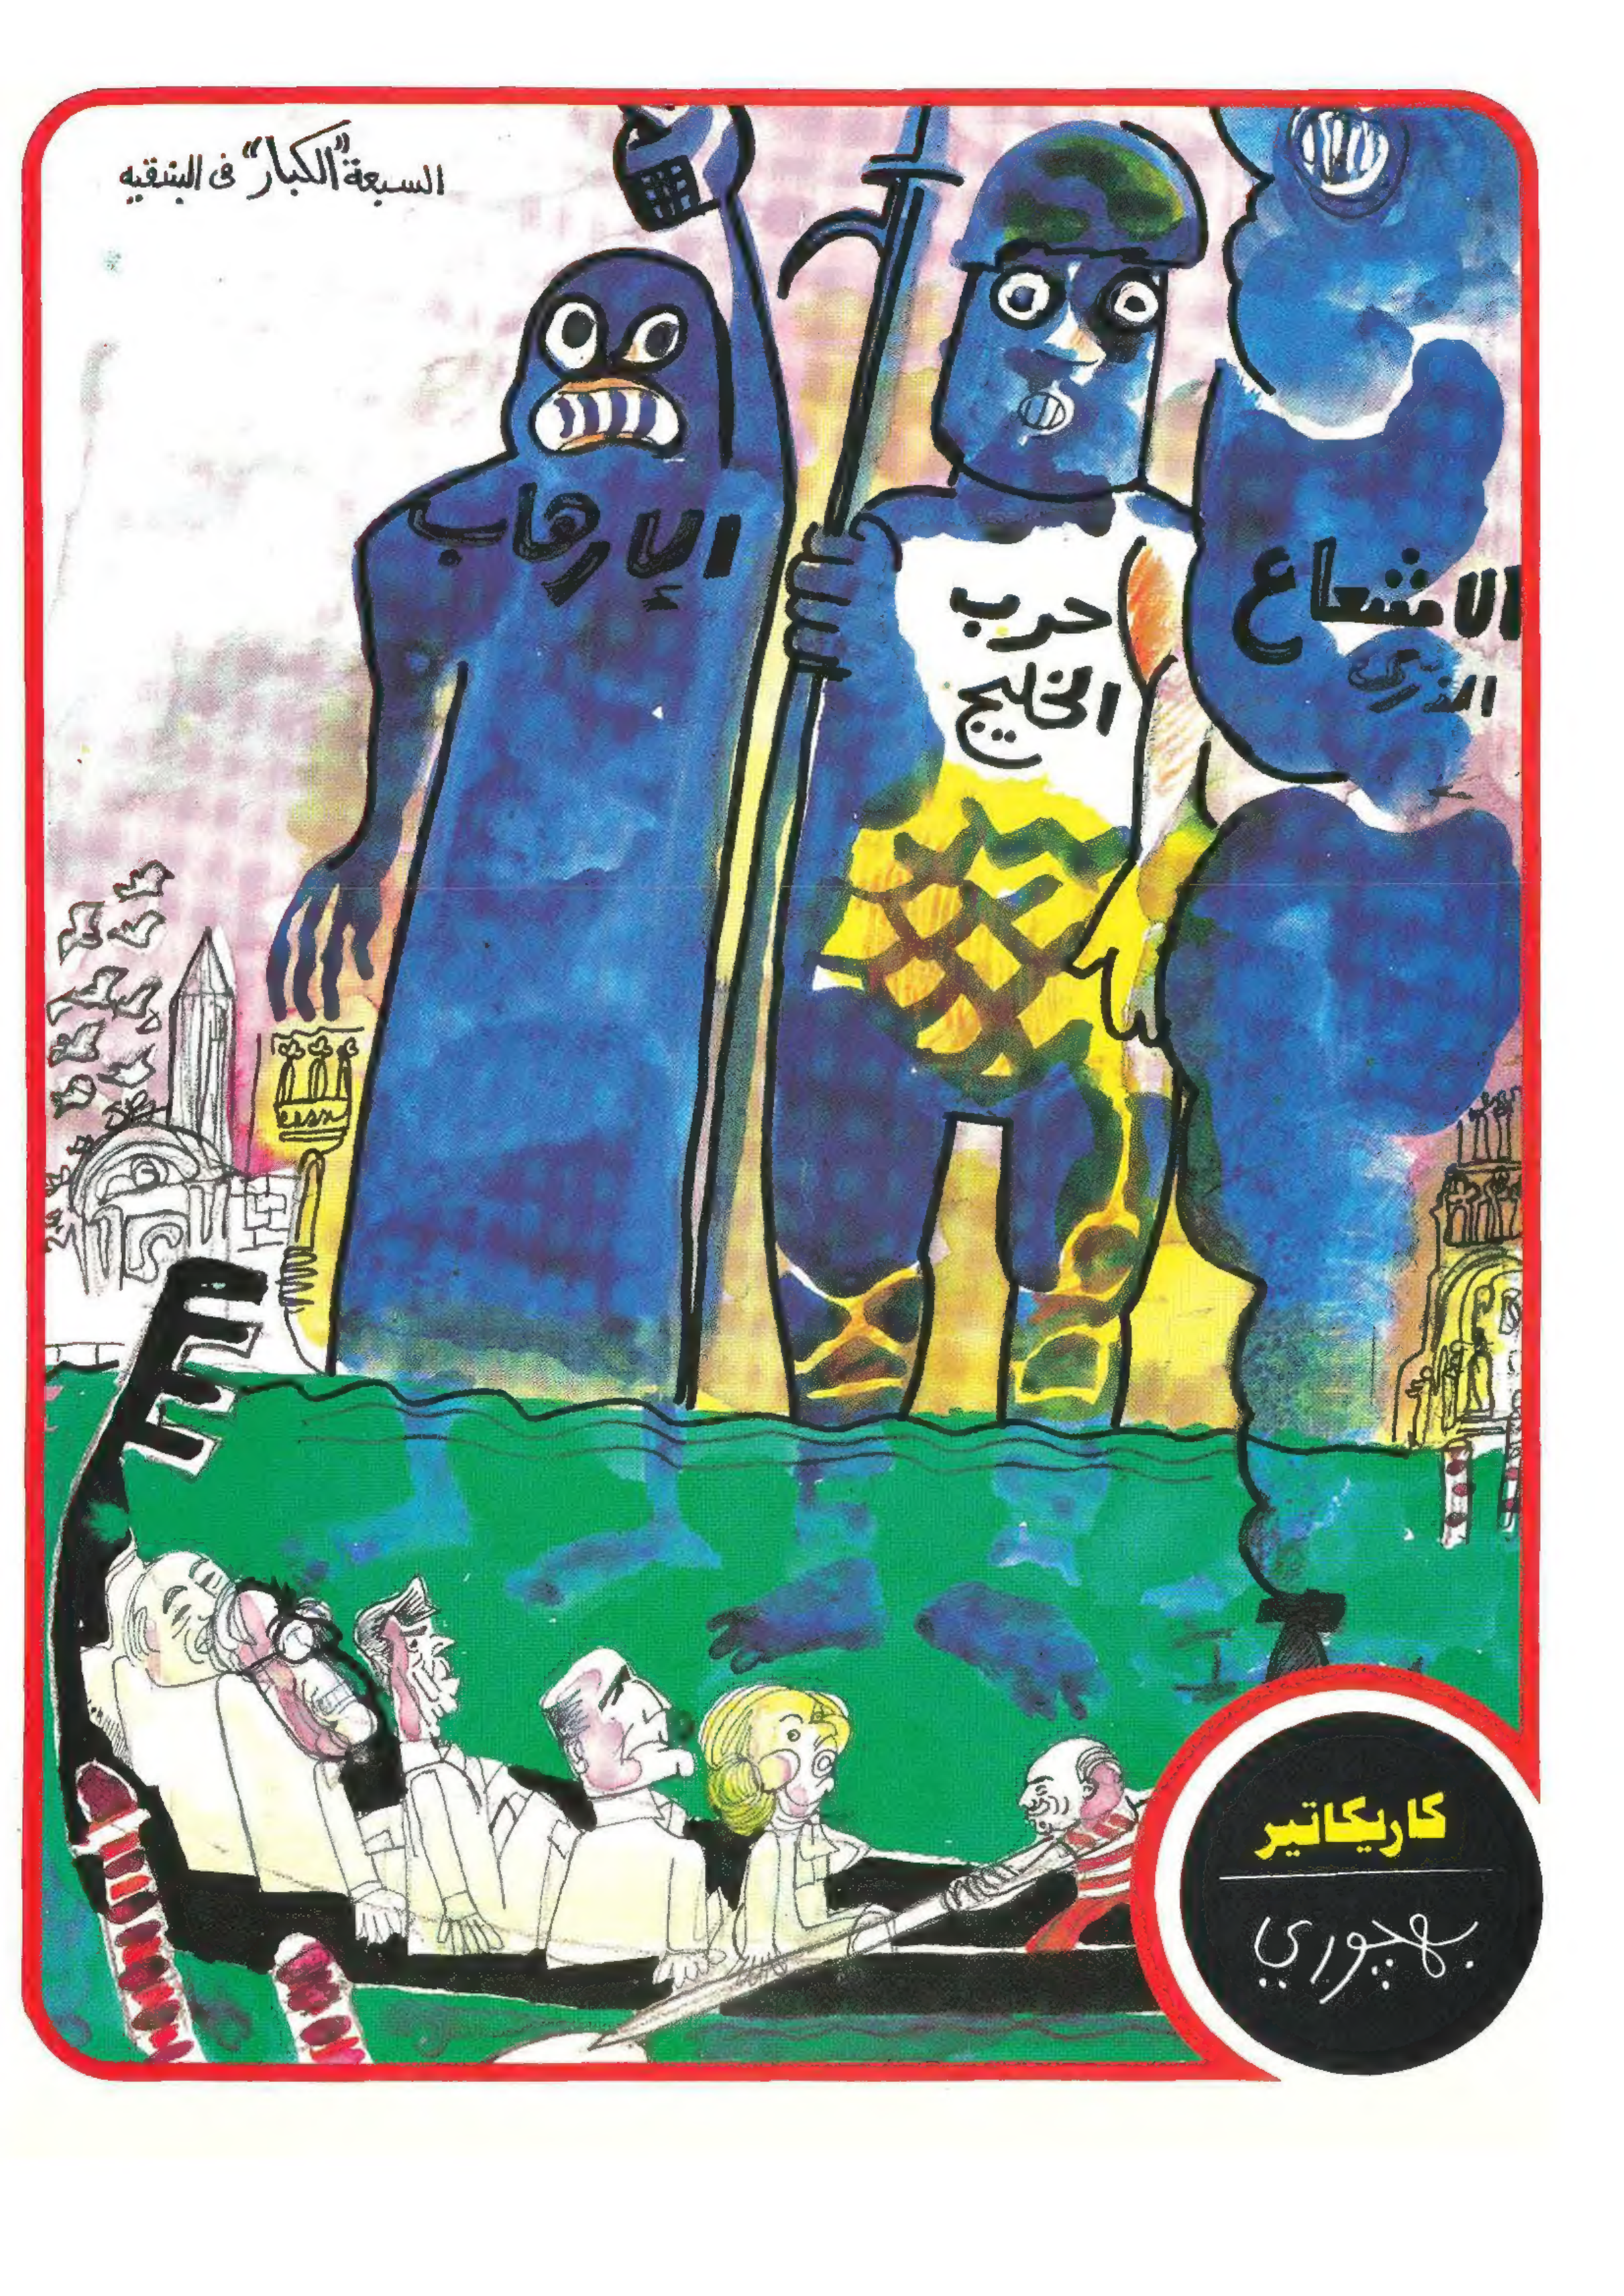 السبعة "الكبار" فى البندقيه
الإرهاب
حرب
الخليج
الاشعاع
الذري
كاريكاتير
بهجوري